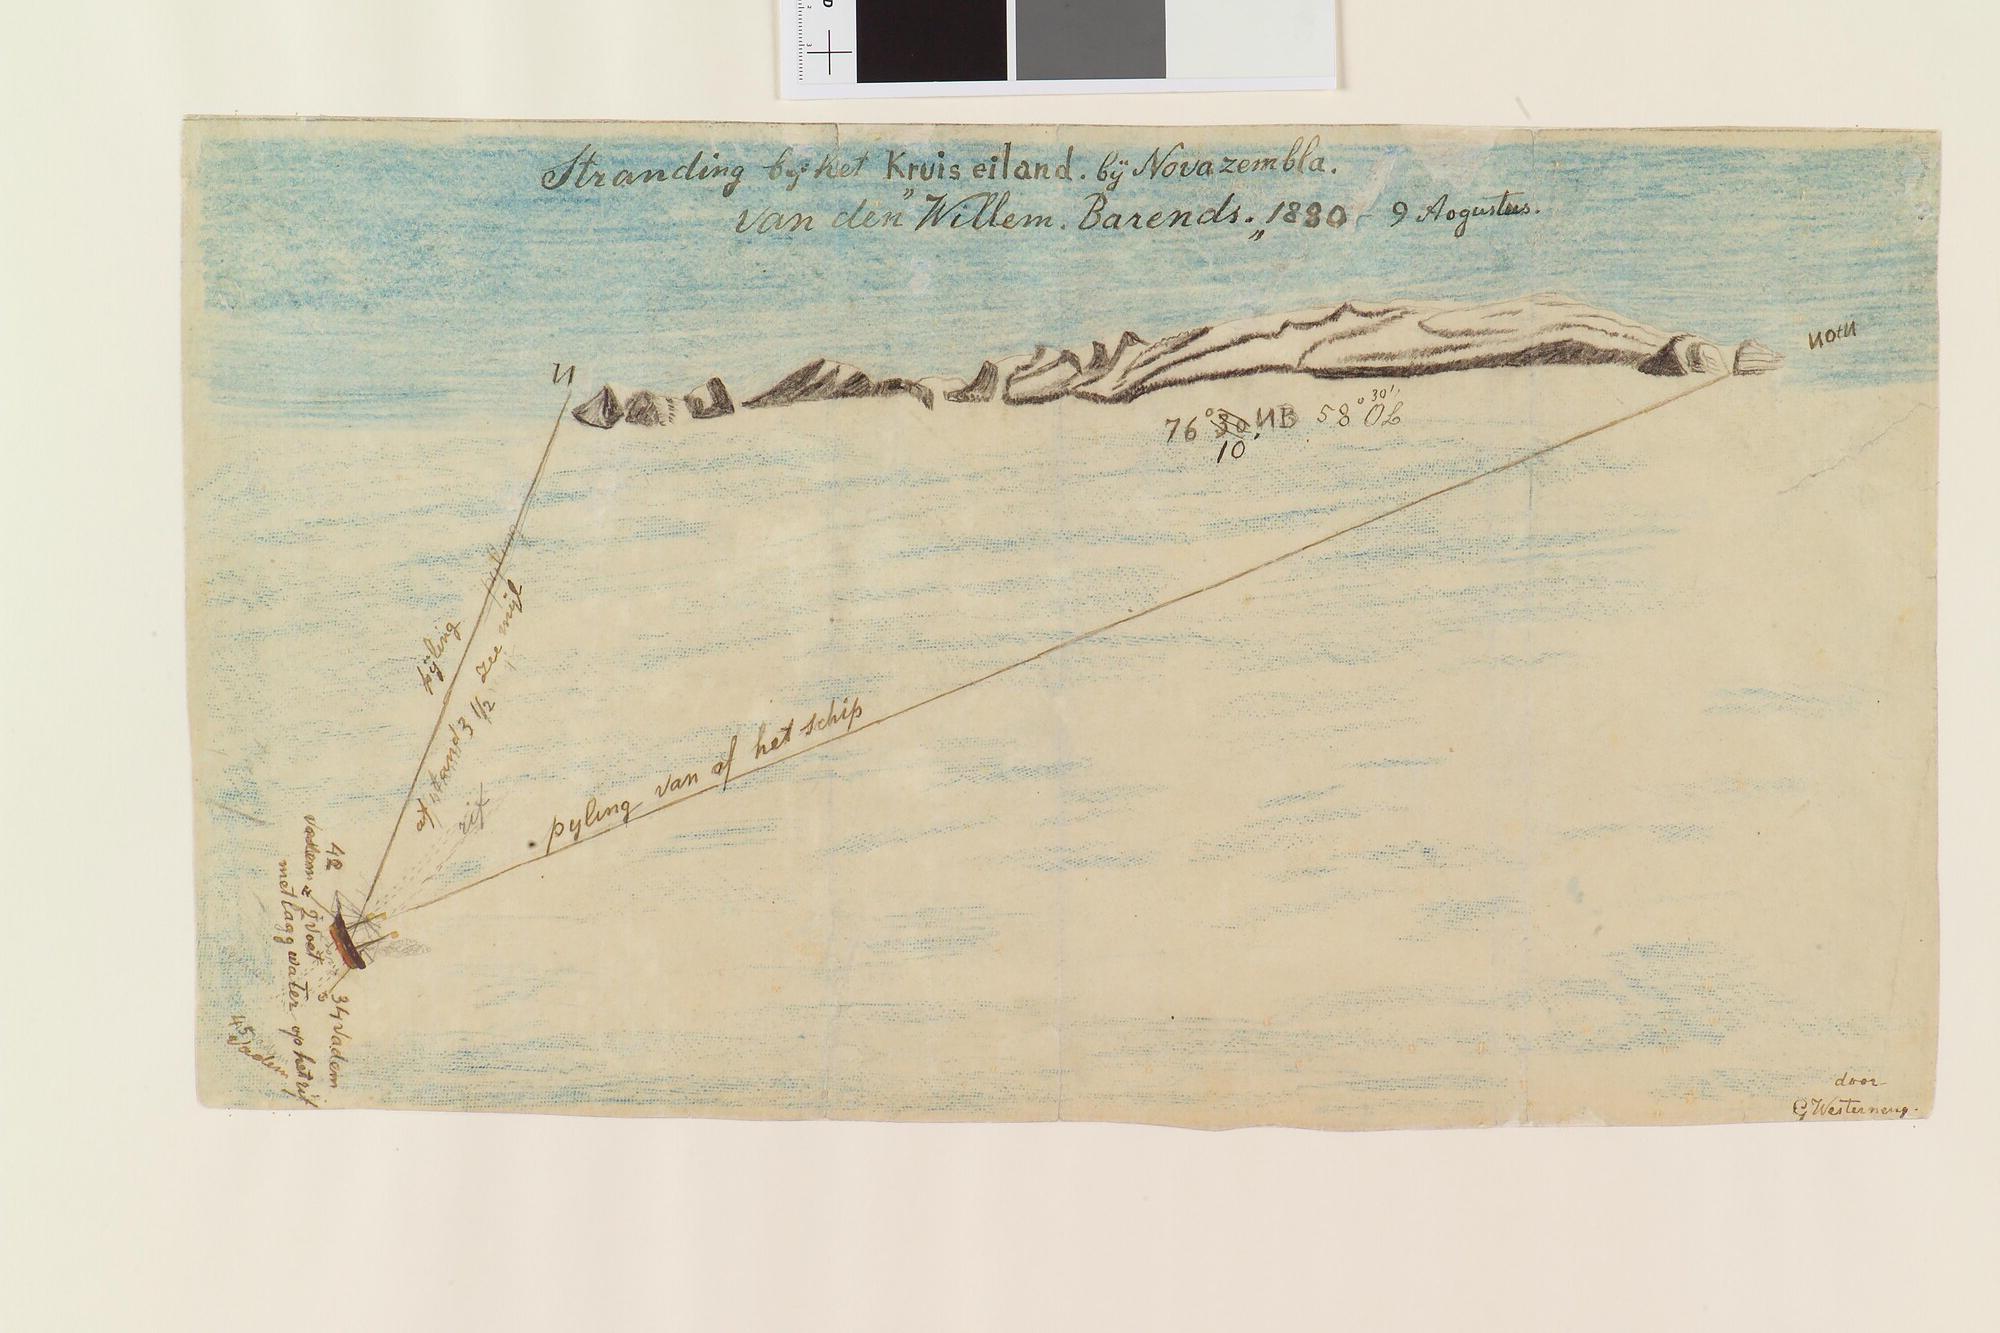 Stranding by het Kruis eiland. bÿ Nova zembla.
van den „Willem. Barends.„ 1880 - 9 Aogustus.
N
NOtN
76° 30 NB 58° 30' ÖL
10'
pÿling
afstand 3 1/2 zee mijl
rif
pyling van af het schip
42
Vadem & 2 voet
met laag water op het rif
34 Vadem
45 Vadem
door
G Westerneng.